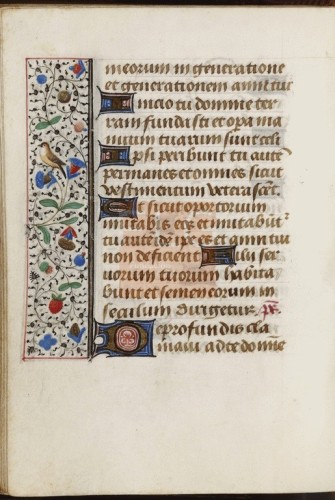 meorum in generatione
et generationem anni tui
Inicio tu domine ter
ram fundasti et opa ma
nuum tuarum sunt celi
Ipsi peribunt tu aute
permanes et omnes sicut
vestimentum veterascet.
Et sicut oportorium
mutabis eos et mutabut
tu aute ide ipe es et anni tui
non deficient Filii ser
uorum tuorum habita
bunt et semen eorum in
seculum dirigetur. ps.
De profundis cla
maui ad te domie